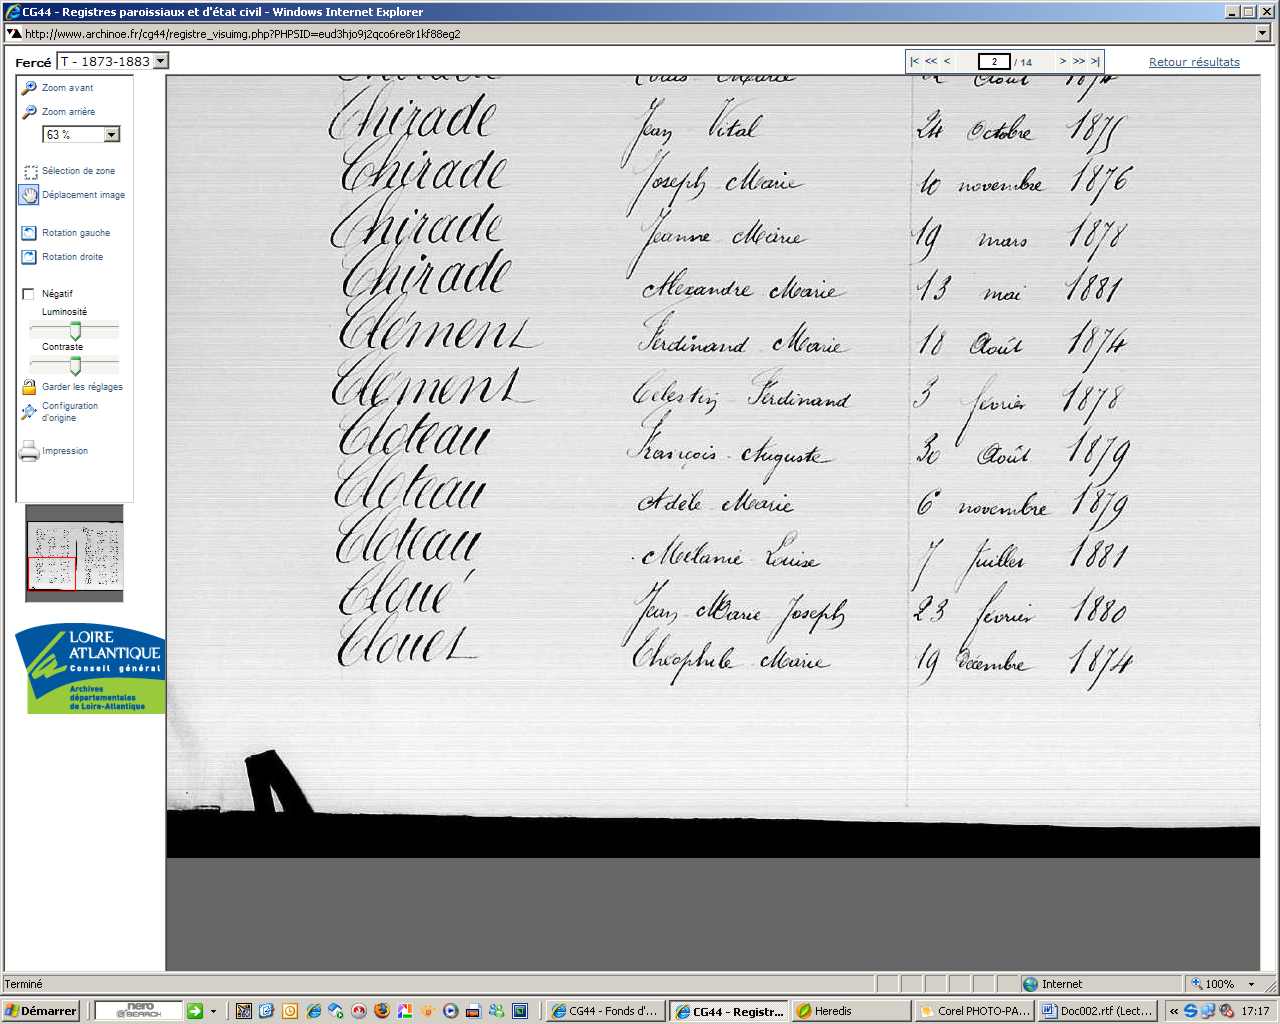 CG44 - Registres paroissiaux et d'état civil - Windows Internet Explorer
http://www.archinoe.fr/cg44/registre_visuimg.php?PHPSID=eud3hjo9j2qco6re8r1kf88eg2
Fercé T - 1873-1883
|< << < 2 / 14 > >> >| Retour résultats
Zoom avant
Zoom arrière
63 %
Sélection de zone
Déplacement image
Rotation gauche
Rotation droite
Négatif
Luminosité
Contraste
Garder les réglages
Configuration
d'origine
Impression
LOIRE
ATLANTIQUE
Conseil général
Archives
départementales
de Loire-Atlantique
Louis Marie Août 1874
Chirade Jean Vital 24 Octobre 1875
Chirade Joseph Marie 10 novembre 1876
Chirade Jeanne Marie 19 mars 1878
Chirade Alexandre Marie 13 mai 1881
Clément Ferdinand Marie 18 Août 1874
Clément Celestin Ferdinand 3 février 1878
Cloteau François Auguste 30 Août 1879
Cloteau Adèle Marie 6 novembre 1879
Cloteau Mélanie Louise 7 Juillet 1881
Cloué Jean Marie Joseph 23 février 1880
Clouet Théophile Marie 19 décembre 1874
Terminé Internet 100%
Démarrer nero SEARCH CG44 - Fonds d'... CG44 - Registr... Heredis Corel PHOTO-PA... Doc002.rtf (Lect... « 17:17